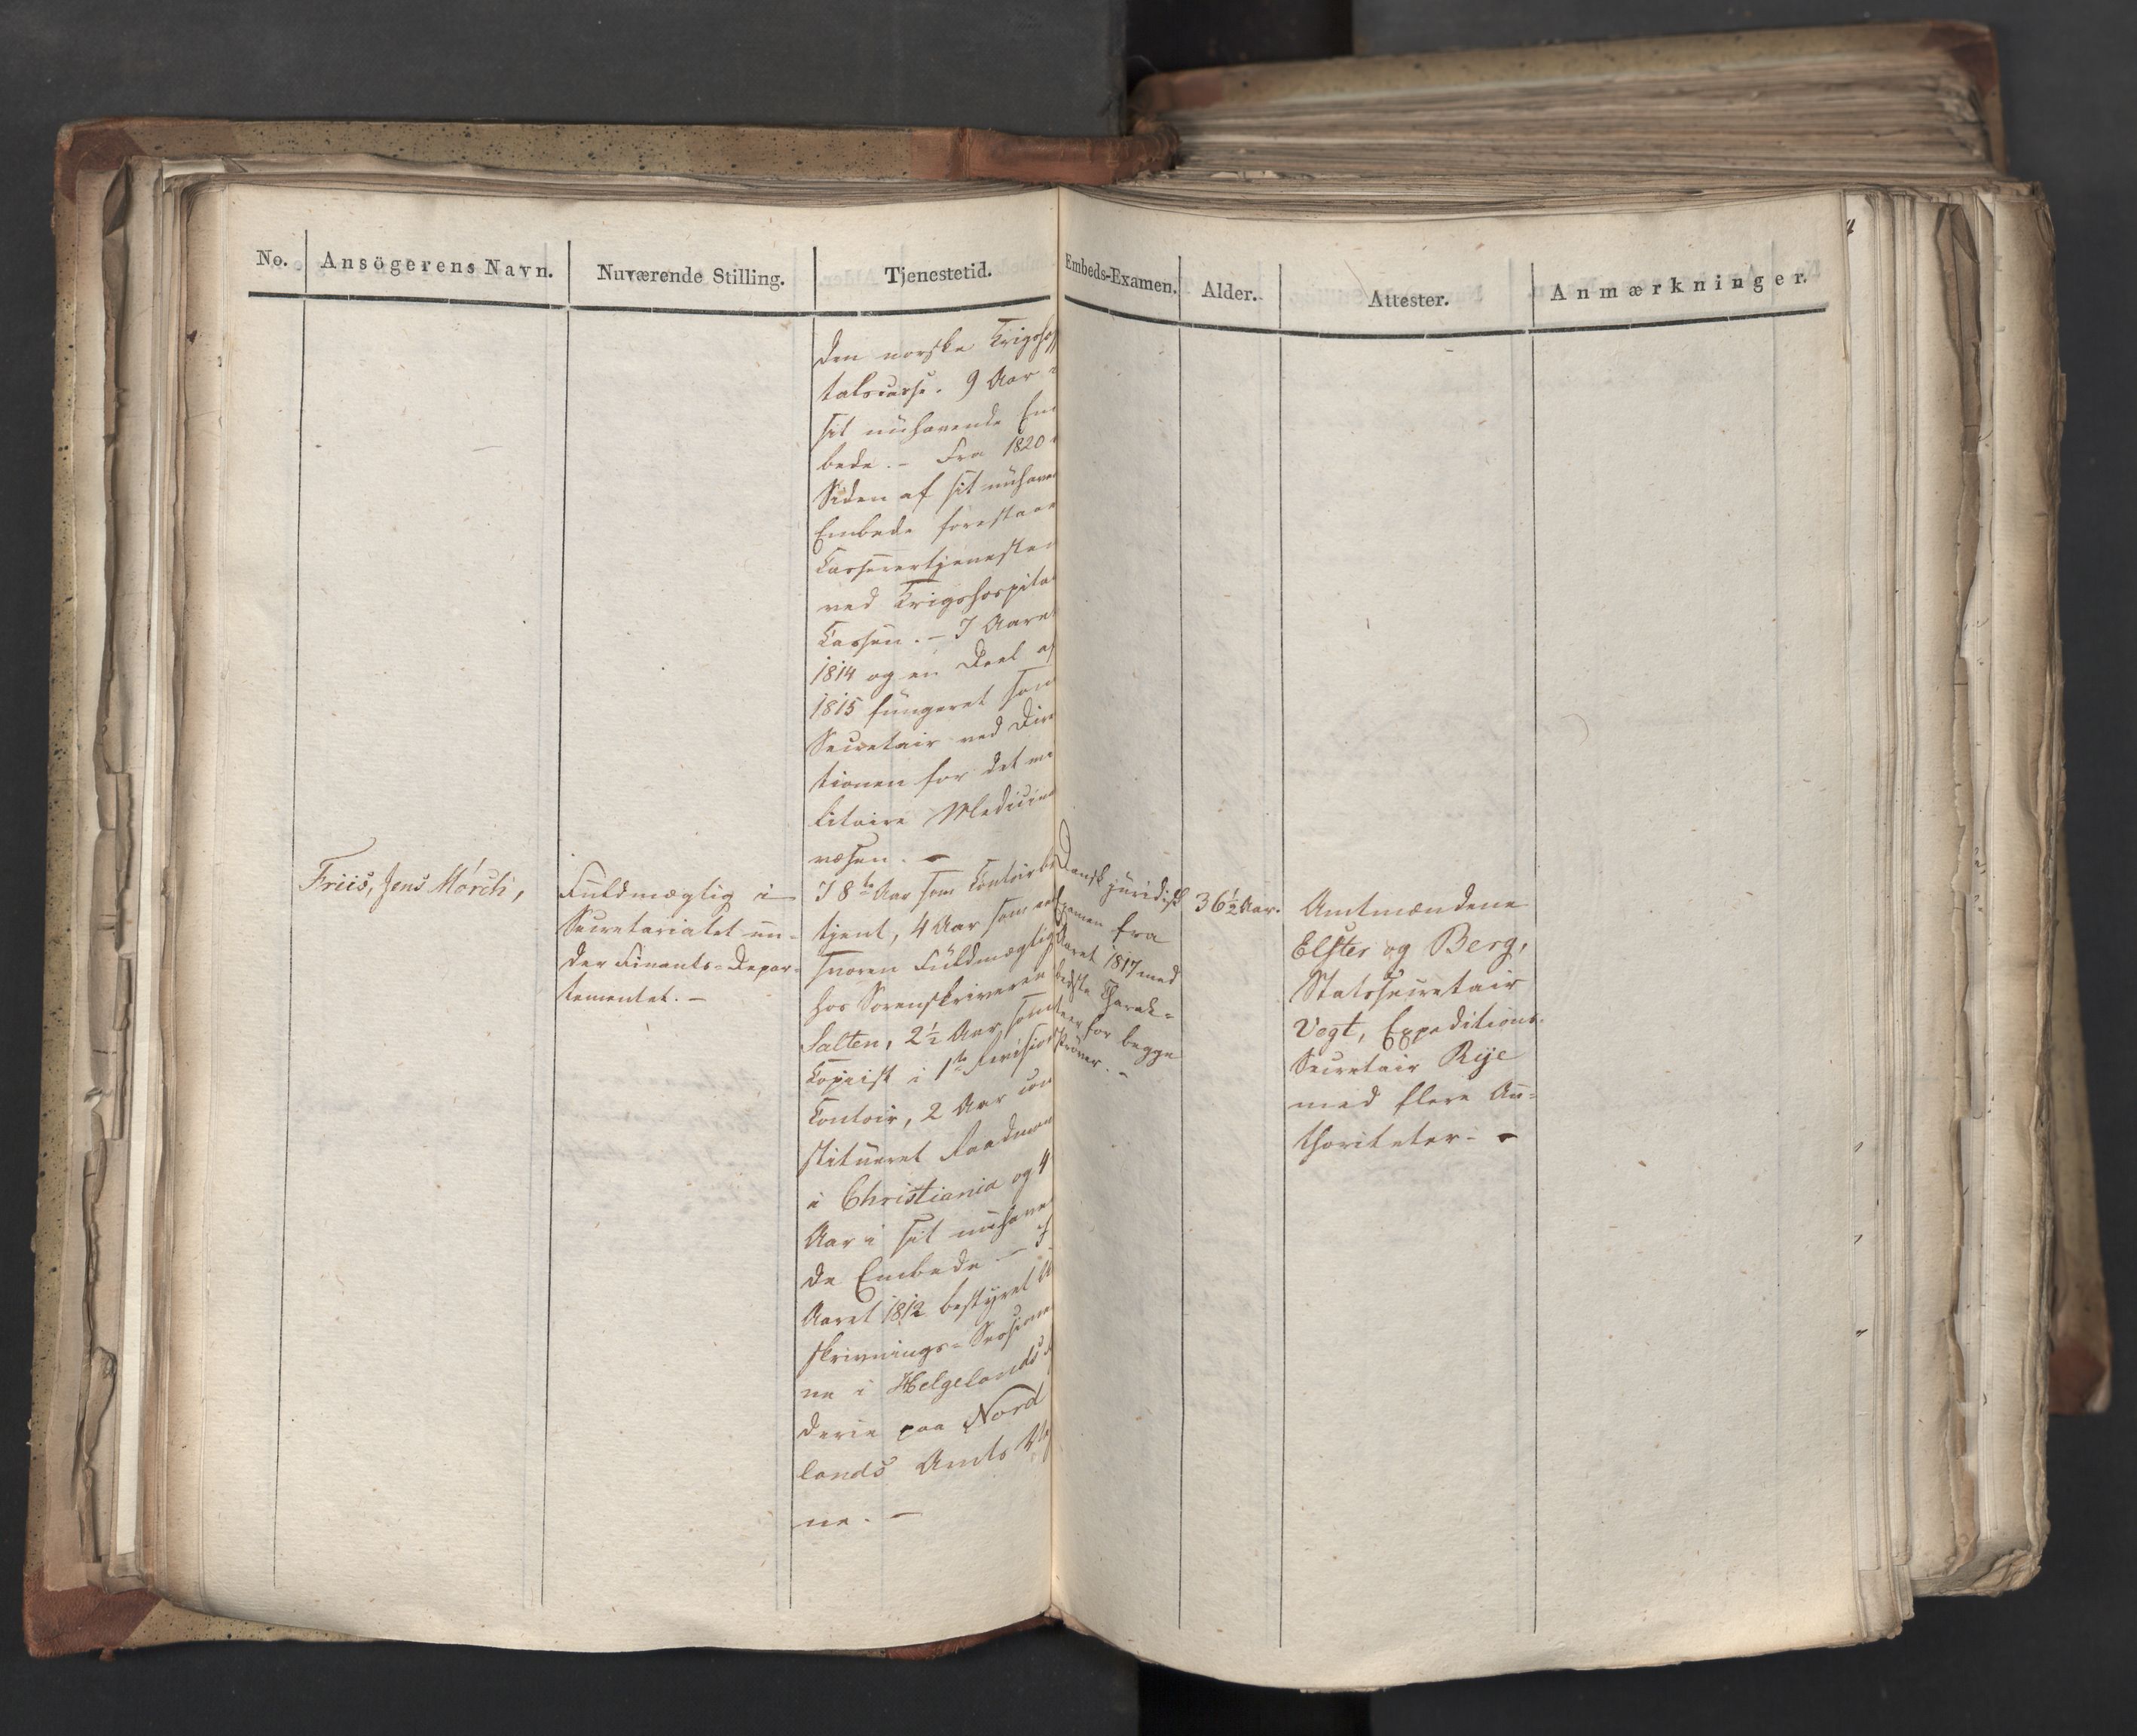 No. Ansögerens Navn. Nuværende Stilling. Tjenestetid. Embeds-Examen. Alder. Attester. Anmærkninger.
den norske Krigshos
talscasse. 9 Aar
sit nuhavende Em
bede. – Fra 1820
Siden af sit nuhaven
Embede forestaaet
Casserertjenesten
ved Krigshospital
Cassen. – I Aaret
1814 og en Deel af
1815 fungeret som
Secretair ved Direc
tionen for det mi
litaire Medicinal
væsen. –
Friis, Jens Mörch,
Fuldmægtig i
Secretariatet un-
der Finants-Depar-
tementet. –
I 8te Aar som Contoirbe
tjent, 4 Aar som eed
svoren Fuldmægtig
hos Sorenskriveren
Salten, 2½ Aar som
Copiist i 1te Revisions
Contoir, 2 Aar con
stitueret Raadmand
i Christiania og 4
Aar i sit nuhaven
de Embede. – I
Aaret 1812 bestyret U
skrivnings-Sessioner
ne i Helgelands
derie paa Nord
lands Amts
ne. –
Dansk juridisk
Examen fra
Aaret 1817 med
bedste Charak-
teer for begge
Pröver. –
36½ Aar.
Amtmændene
Elster og Berg,
Statssecretair
Vogt, Expeditions-
Secretair Rye
med flere Au-
thoriteter. –